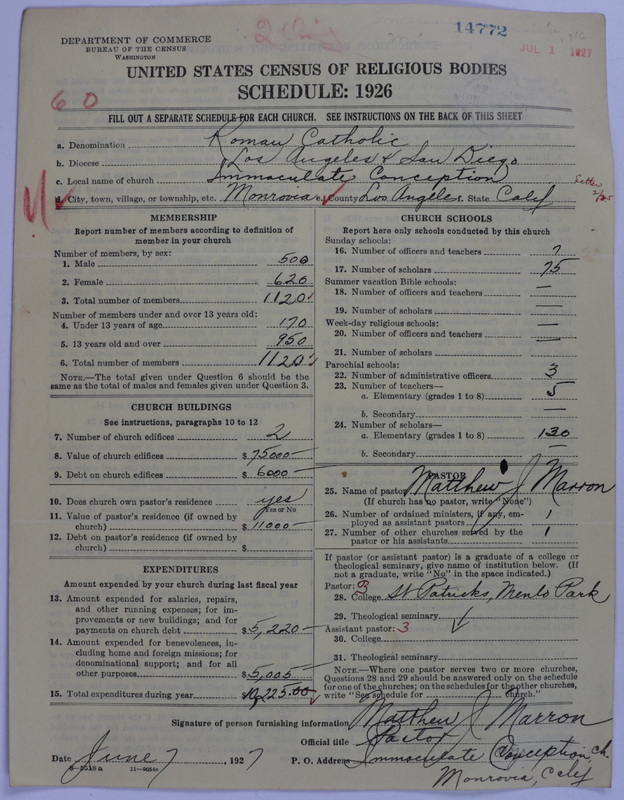 14772
JUL 1 1927
DEPARTMENT OF COMMERCE
BUREAU OF THE CENSUS
WASHINGTON
UNITED STATES CENSUS OF RELIGIOUS BODIES
SCHEDULE: 1926
60
FILL OUT A SEPARATE SCHEDULE FOR EACH CHURCH. SEE INSTRUCTIONS ON THE BACK OF THIS SHEET
a. Denomination Roman Catholic
b. Diocese Los Angeles & San Diego
c. Local name of church Immaculate Conception
d. City, town, village, or township, etc. Monrovia e. County Los Angeles f. State Calif
MEMBERSHIP
Report number of members according to definition of
member in your church
Number of members, by sex:
1. Male 500
2. Female 620
3. Total number of members 1120
Number of members under and over 13 years old:
4. Under 13 years of age 170
5. 13 years old and over 950
6. Total number of members 1120
NOTE.—The total given under Question 6 should be the
same as the total of males and females given under Question 3.
CHURCH BUILDINGS
See instructions, paragraphs 10 to 12
7. Number of church edifices 2
8. Value of church edifices $ 75000—
9. Debt on church edifices $ 6000—
10. Does church own pastor's residence yes
Yes or No
11. Value of pastor's residence (if owned by
church) $ 11000—
12. Debt on pastor's residence (if owned by
church) $
EXPENDITURES
Amount expended by your church during last fiscal year
13. Amount expended for salaries, repairs,
and other running expenses; for im-
provements or new buildings; and for
payments on church debt $ 5,220—
14. Amount expended for benevolences, in-
cluding home and foreign missions; for
denominational support; and for all
other purposes $ 5,005—
15. Total expenditures during year 10,225.00
CHURCH SCHOOLS
Report here only schools conducted by this church
Sunday schools:
16. Number of officers and teachers 7
17. Number of scholars 75
Summer vacation Bible schools:
18. Number of officers and teachers —
19. Number of scholars —
Week-day religious schools:
20. Number of officers and teachers —
21. Number of scholars —
Parochial schools:
22. Number of administrative officers 3
23. Number of teachers—
a. Elementary (grades 1 to 8) 5
b. Secondary —
24. Number of scholars—
a. Elementary (grades 1 to 8) 130
b. Secondary —
PASTOR
25. Name of pastor Matthew J Marron
(If church has no pastor, write "None")
26. Number of ordained ministers, if any, em-
ployed as assistant pastors 1
27. Number of other churches served by the
pastor or his assistants 1
If pastor (or assistant pastor) is a graduate of a college or
theological seminary, give name of institution below. (If
not a graduate, write "No" in the space indicated.)
Pastor: 3
28. College St Patricks, Menlo Park
29. Theological seminary
Assistant pastor: 3
30. College
31. Theological seminary
NOTE.—Where one pastor serves two or more churches,
Questions 28 and 29 should be answered only on the schedule
for one of the churches; on the schedules for the other churches,
write "See schedule for church."
Signature of person furnishing information Matthew J Marron
Official title Pastor
Date June 7, 1927 P. O. Address Immaculate Conception Ch.
Monrovia, Calif